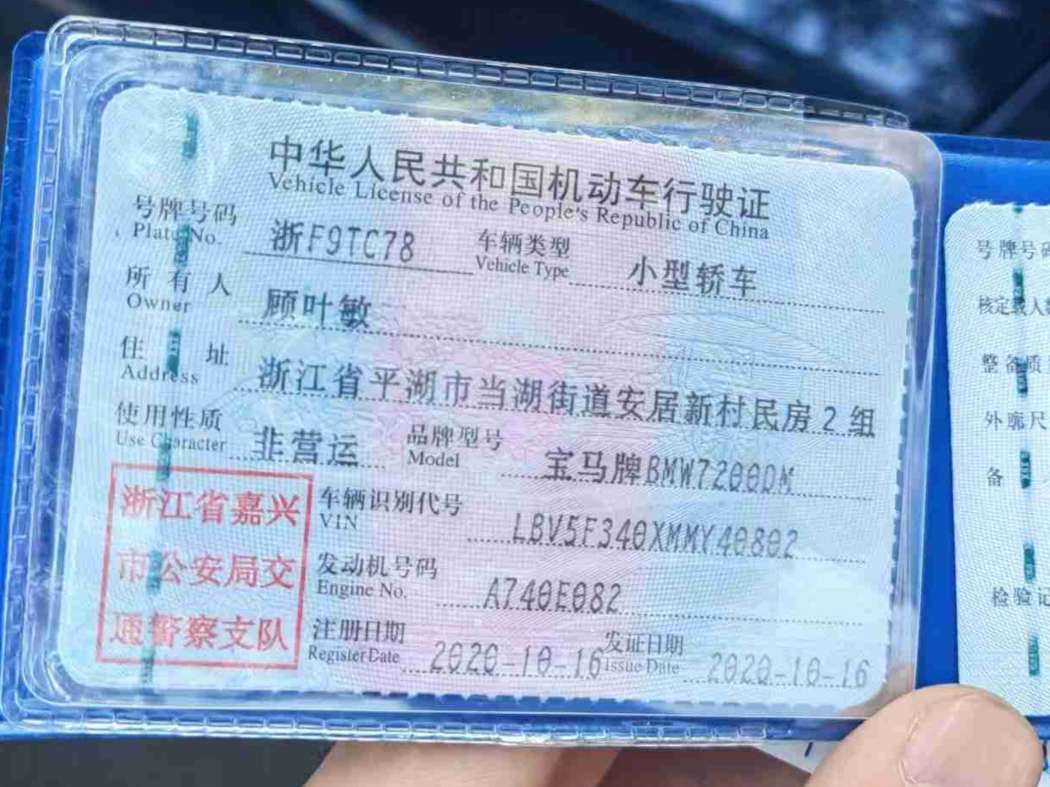 中华人民共和国机动车行驶证
Vehicle License of the People's Republic of China
号牌号码 浙F9TC78 车辆类型 小型轿车
Plate No. Vehicle Type
所有人 顾叶敏
Owner
住址 浙江省平湖市当湖街道安居新村民房2组
Address
使用性质 非营运 品牌型号 宝马牌BMW7200DM
Use Character Model
浙江省嘉兴
市公安局交
通警察支队
车辆识别代号 LBV5F340XMMY40802
VIN
发动机号码 A740E082
Engine No.
注册日期 2020-10-16 发证日期 2020-10-16
Register Date Issue Date
号牌号码
核定载人
整备质
外廓尺
备
检验记